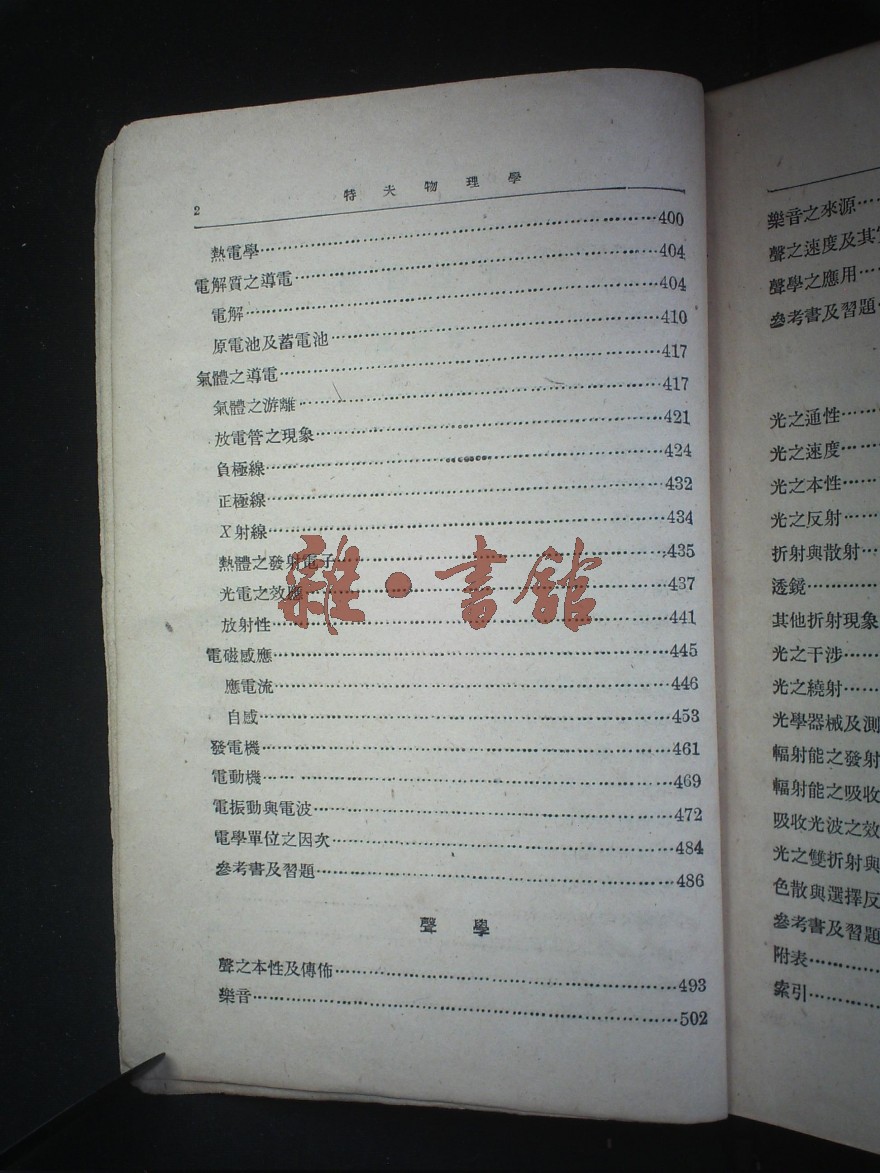 2 特夫物理學
熱電學…………400
電解質之導電…………404
電解…………404
原電池及蓄電池…………410
氣體之導電…………417
氣體之游離…………417
放電管之現象…………421
負極線…………424
正極線…………432
X射線…………434
熱體之發射電子…………435
光電之效應…………437
放射性…………441
電磁感應…………445
應電流…………446
自感…………453
發電機…………461
電動機…………469
電振動與電波…………472
電學單位之因次…………484
參考書及習題…………486
聲學
聲之本性及傳佈…………493
樂音…………502
雜·書館
樂音之來源……
聲之速度及其
聲學之應用…
參考書及習題…
光之通性……
光之速度……
光之本性……
光之反射……
折射與散射…
透鏡……
其他折射現象
光之干涉……
光之繞射……
光學器械及測
輻射能之發射
輻射能之吸收
吸收光波之效
光之雙折射與
色散與選擇反
參考書及習題
附表……
索引……